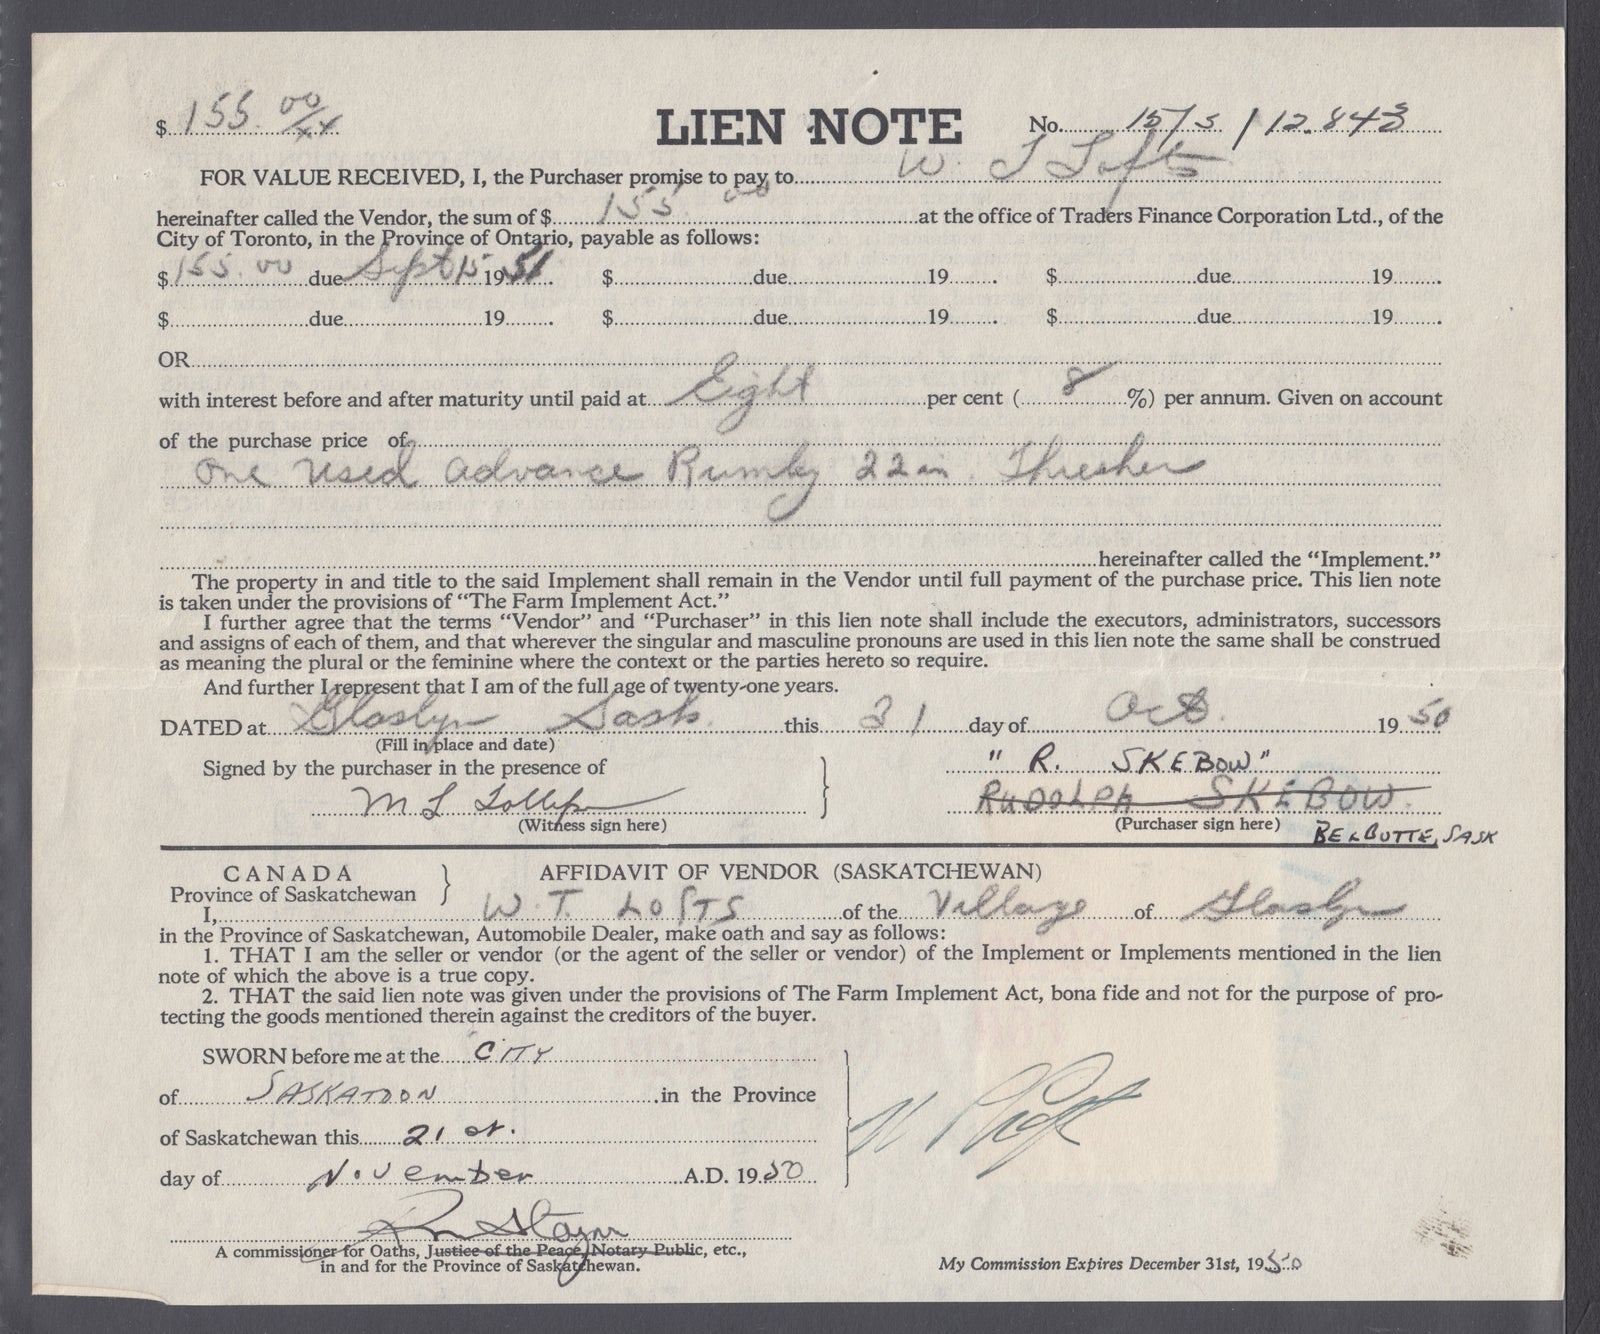 $ 155. 00/xx LIEN NOTE No. 15/5 / 12.843
FOR VALUE RECEIVED, I, the Purchaser promise to pay to W. T Lofts
hereinafter called the Vendor, the sum of $ 155. 00 at the office of Traders Finance Corporation Ltd., of the
City of Toronto, in the Province of Ontario, payable as follows:
$ 155.00 due Sept 15 19 51. $ due 19 . $ due 19 .
$ due 19 . $ due 19 . $ due 19 .
OR
with interest before and after maturity until paid at Eight per cent ( 8 %) per annum. Given on account
of the purchase price of
One Used Advance Rumley 22 in. Thresher
hereinafter called the "Implement."
The property in and title to the said Implement shall remain in the Vendor until full payment of the purchase price. This lien note
is taken under the provisions of "The Farm Implement Act."
I further agree that the terms "Vendor" and "Purchaser" in this lien note shall include the executors, administrators, successors
and assigns of each of them, and that wherever the singular and masculine pronouns are used in this lien note the same shall be construed
as meaning the plural or the feminine where the context or the parties hereto so require.
And further I represent that I am of the full age of twenty-one years.
DATED at Glaslyn Sask. this 31 day of Oct. 19 50
(Fill in place and date)
Signed by the purchaser in the presence of } " R. SKEBOW"
M L RUDOLPH SKEBOW.
(Witness sign here) (Purchaser sign here) BELBUTTE, SASK
CANADA } AFFIDAVIT OF VENDOR (SASKATCHEWAN)
Province of Saskatchewan
I, W. T. LOFTS of the Village of Glaslyn
in the Province of Saskatchewan, Automobile Dealer, make oath and say as follows:
1. THAT I am the seller or vendor (or the agent of the seller or vendor) of the Implement or Implements mentioned in the lien
note of which the above is a true copy.
2. THAT the said lien note was given under the provisions of The Farm Implement Act, bona fide and not for the purpose of pro-
tecting the goods mentioned therein against the creditors of the buyer.
SWORN before me at the CITY
of SASKATOON in the Province
of Saskatchewan this 21 st.
day of November A.D. 19 50
A commissioner for Oaths, Justice of the Peace, Notary Public, etc.,
in and for the Province of Saskatchewan.
My Commission Expires December 31st, 19 50